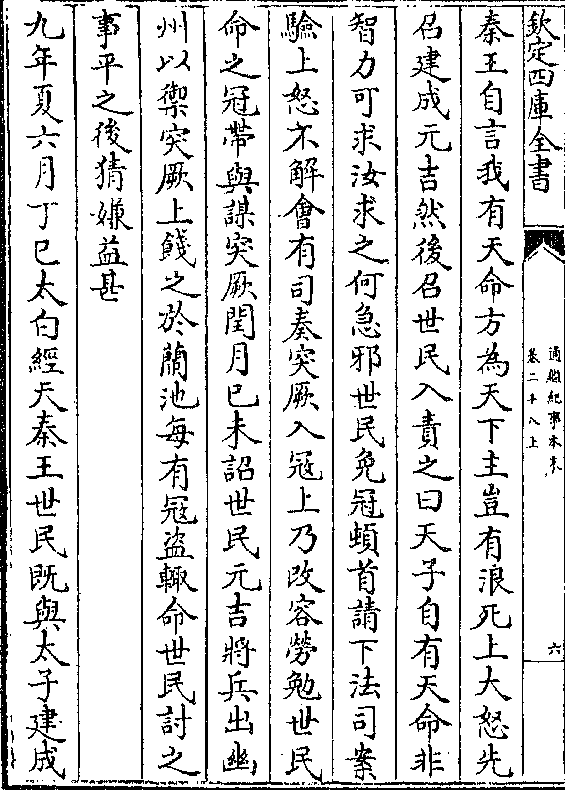 欽定四庫全書
通鑑紀事本末
卷二十八上
六
秦王自言我有天命方為天下主豈有浪死上大怒先
召建成元吉然後召世民入責之曰天子自有天命非
智力可求汝求之何急邪世民免冠頓首請下法司案
驗上怒不解會有司奏突厥入寇上乃改容勞勉世民
命之冠帶與謀突厥閏月己未詔世民元吉將兵出幽
州以禦突厥上餞之於蘭池每有寇盗輙命世民討之
事平之後猜嫌益甚
九年夏六月丁巳太白經天秦王世民既與太子建成